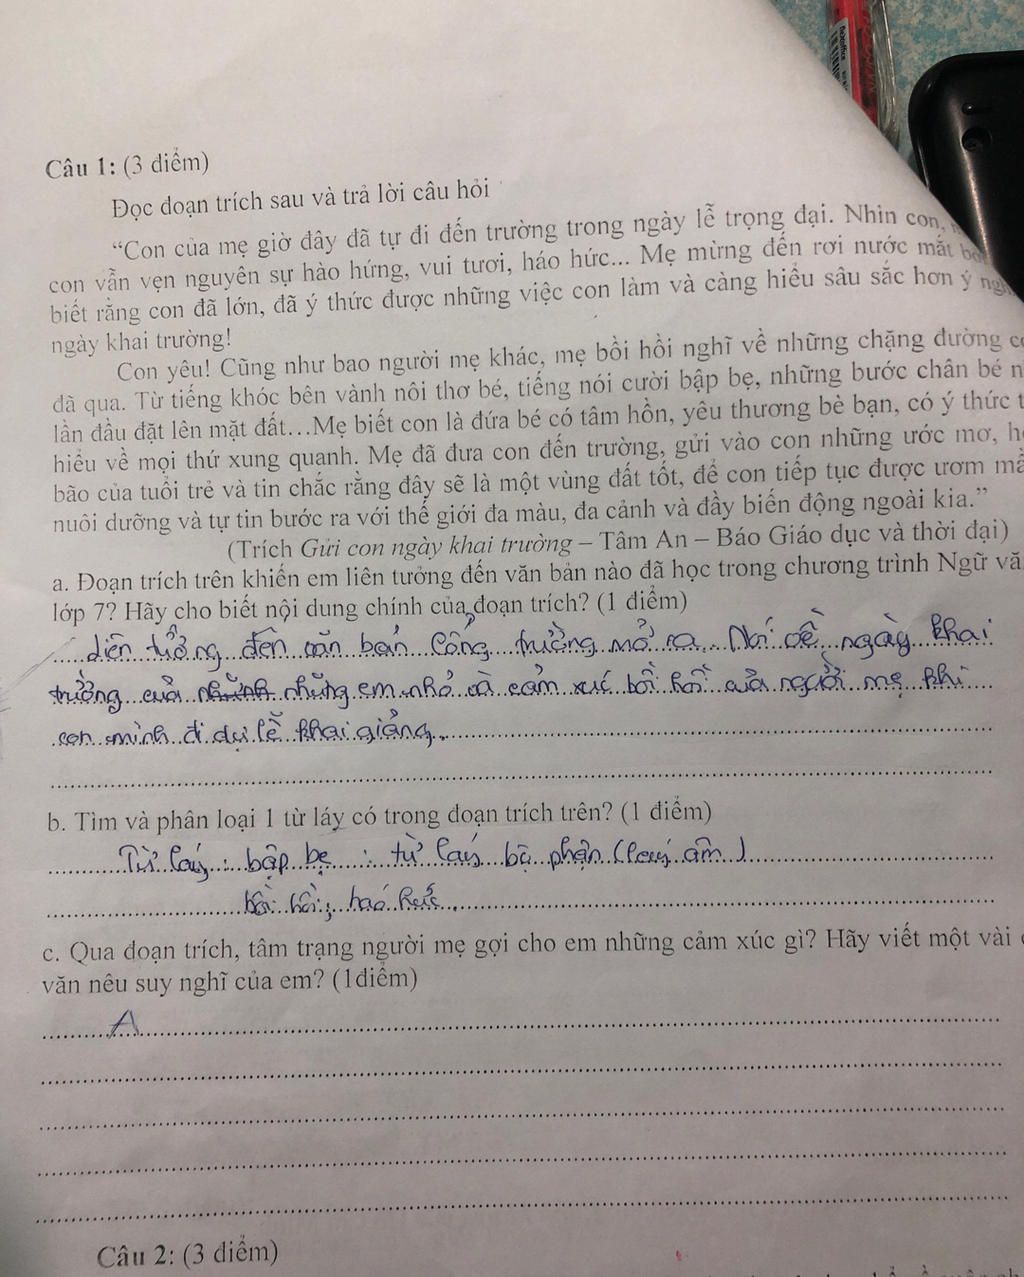 Câu 1: (3 điểm)
Đọc đoạn trích sau và trả lời câu hỏi
“Con của mẹ giờ đây đã tự đi đến trường trong ngày lễ trọng đại. Nhìn con,
con vẫn vẹn nguyên sự hào hứng, vui tươi, háo hức... Mẹ mừng đến rơi nước mắt
biết rằng con đã lớn, đã ý thức được những việc con làm và càng hiểu sâu sắc hơn ý
ngày khai trường!
Con yêu! Cũng như bao người mẹ khác, mẹ bồi hồi nghĩ về những chặng đường
đã qua. Từ tiếng khóc bên vành nôi thơ bé, tiếng nói cười bập bẹ, những bước chân bé
lần đầu đặt lên mặt đất…Mẹ biết con là đứa bé có tâm hồn, yêu thương bè bạn, có ý thức
hiểu về mọi thứ xung quanh. Mẹ đã đưa con đến trường, gửi vào con những ước mơ,
bão của tuổi trẻ và tin chắc rằng đây sẽ là một vùng đất tốt, để con tiếp tục được ươm
nuôi dưỡng và tự tin bước ra với thế giới đa màu, đa cảnh và đầy biến động ngoài kia.”
(Trích Gửi con ngày khai trường – Tâm An – Báo Giáo dục và thời đại)
a. Đoạn trích trên khiến em liên tưởng đến văn bản nào đã học trong chương trình Ngữ
lớp 7? Hãy cho biết nội dung chính của đoạn trích? (1 điểm)
liên tưởng đến văn bản Cổng trường mở ra. Nói về ngày khai
trường của những em nhỏ và cảm xúc bồi hồi của người mẹ khi
con mình đi dự lễ khai giảng.
b. Tìm và phân loại 1 từ láy có trong đoạn trích trên? (1 điểm)
Từ láy : bập bẹ : từ láy bộ phận (láy âm)
bồi hồi, háo hức.
c. Qua đoạn trích, tâm trạng người mẹ gợi cho em những cảm xúc gì? Hãy viết một vài
văn nêu suy nghĩ của em? (1điểm)
A
Câu 2: (3 điểm)